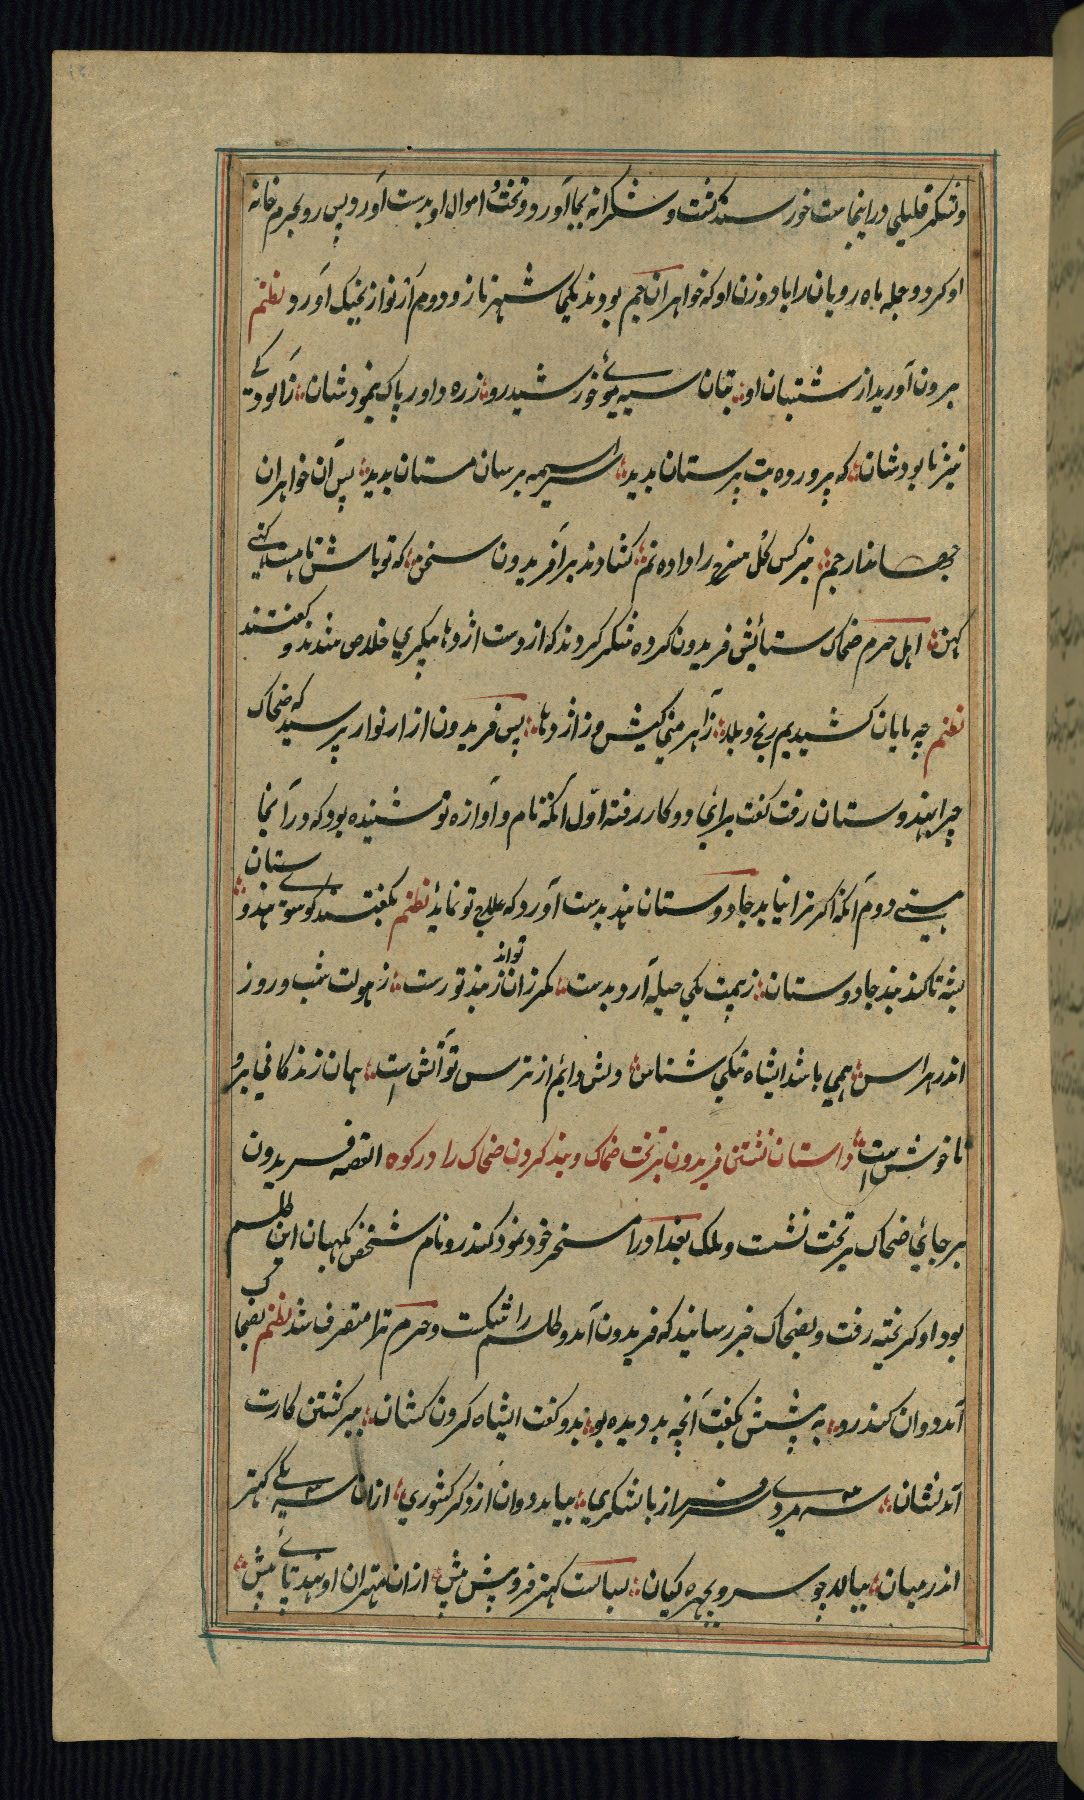 و لشکر قلیلی در اینجا ست خورسند گشت و شکرانه بجا آورد و تخت و اموال او بدست آورد پس رو بحرم خانه
او کرد و جمله ماه رویان را با دو زن او که خواهران جم بودند یکی شهرناز و دوم ارنواز بچنگ آورد نظم
برون آورید از شبستان او ؛ بتان سیه موی خورشید رو ؛ زره داور پاک بنمودشان ؛ ز آلودگی
نیز نابودشان ؛ که پرورده بت پرستان بدید ؛ سراسیمه برسان مستان بدید ؛ پس آن خواهران
جهاندار جم ؛ ز نرگس گل سرخ را داده نم ؛ گشادند بر آفریدون سخن ؛ که نو باش تا هست گیتی
کهن ؛ اهل حرم ضحاک ستائیش فریدون کرده شکر کردند که از دست اژدها پیکری خلاص شدند و گفتند
نظم چه مایان کشیدیم رنج و بلا ؛ ز آهرمنی کیش وز اژدها ؛ پس فریدون از ارنواز پرسید که ضحاک
چرا بهندوستان رفت گفت برائی دو کار رفته اول آنکه نام و آوازه تو شنیده بود که در آنجا
بینی دوم آنکه اگر ترا نیابد جادوستان هند بدست آورد که علاج تو نماید نظم بگفتند کو سوی هندوستان
بشد تا کند بند جادوستان ؛ ز بهت یکی حیله آرد بدست ؛ مگر زان تواند ز بند تو رست ؛ ز هولت شب و روز
اندر هراس ؛ همی باشد ایشاه نیکی شناس ؛ دلش دائم از ترس تو آتش است ؛ همان زندگانی برو
ناخوش است ؛ داستان نشستن فریدون بر تخت ضحاک و بند کردن ضحاک را در کوه القصه فریدون
بر جائی ضحاک بر تخت نشست و ملک بغداد را مسخر خود نمود کندرو نام شخص نگهبان این طلسم
بود او گریخته رفت و بضحاک خبر رسانید که فریدون آمد و طلسم را شکست و حرم ترا متصرف شد نظم بضحاک
آمد دوان کندرو ؛ به پیشش بگفت آنچه بد دیده بو ؛ بدو گفت ایشاه گردن کشان ؛ ببر گشتن کارت
آمد نشان ؛ سه مردی سرفراز با لشکری ؛ بیامد دوان از دگر کشوری ؛ ازان سه یکی کهتر
اندر میان ؛ ببالد چو سرو بچهره کیان ؛ بسالست کهتر فزونیش بیش ؛ ازان مهتران او نهد پائی پیش ؛